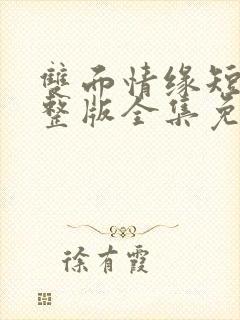 雙而情缘短
整版全集免
徐有霞